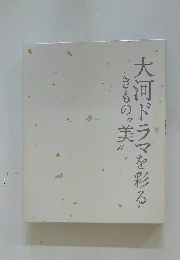 大河ドラマを彩る
きもの“美”